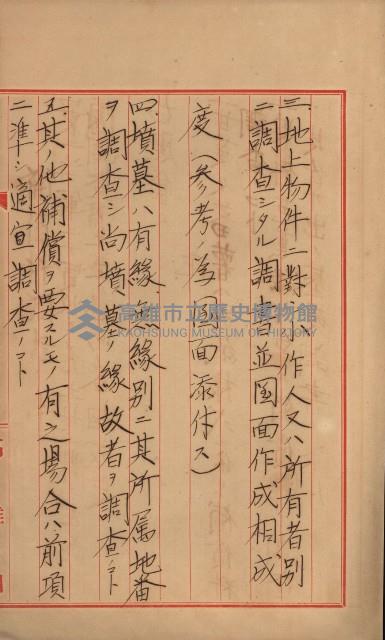 三、地上物件ニ對シ作人又ハ所有者別
ニ調査シタル調書並図面作成相成
度（参考ノ為図面添付ス）
四、墳墓ハ有縁無縁別ニ其所属地番
ヲ調査シ尚墳墓ノ縁故者ヲ調査ノコト
五、其ノ他補償ヲ要スルモノ有之場合ハ前項
ニ準シ適宜調査ノコト
高雄市立歷史博物館
KAOHSIUNG MUSEUM OF HISTORY